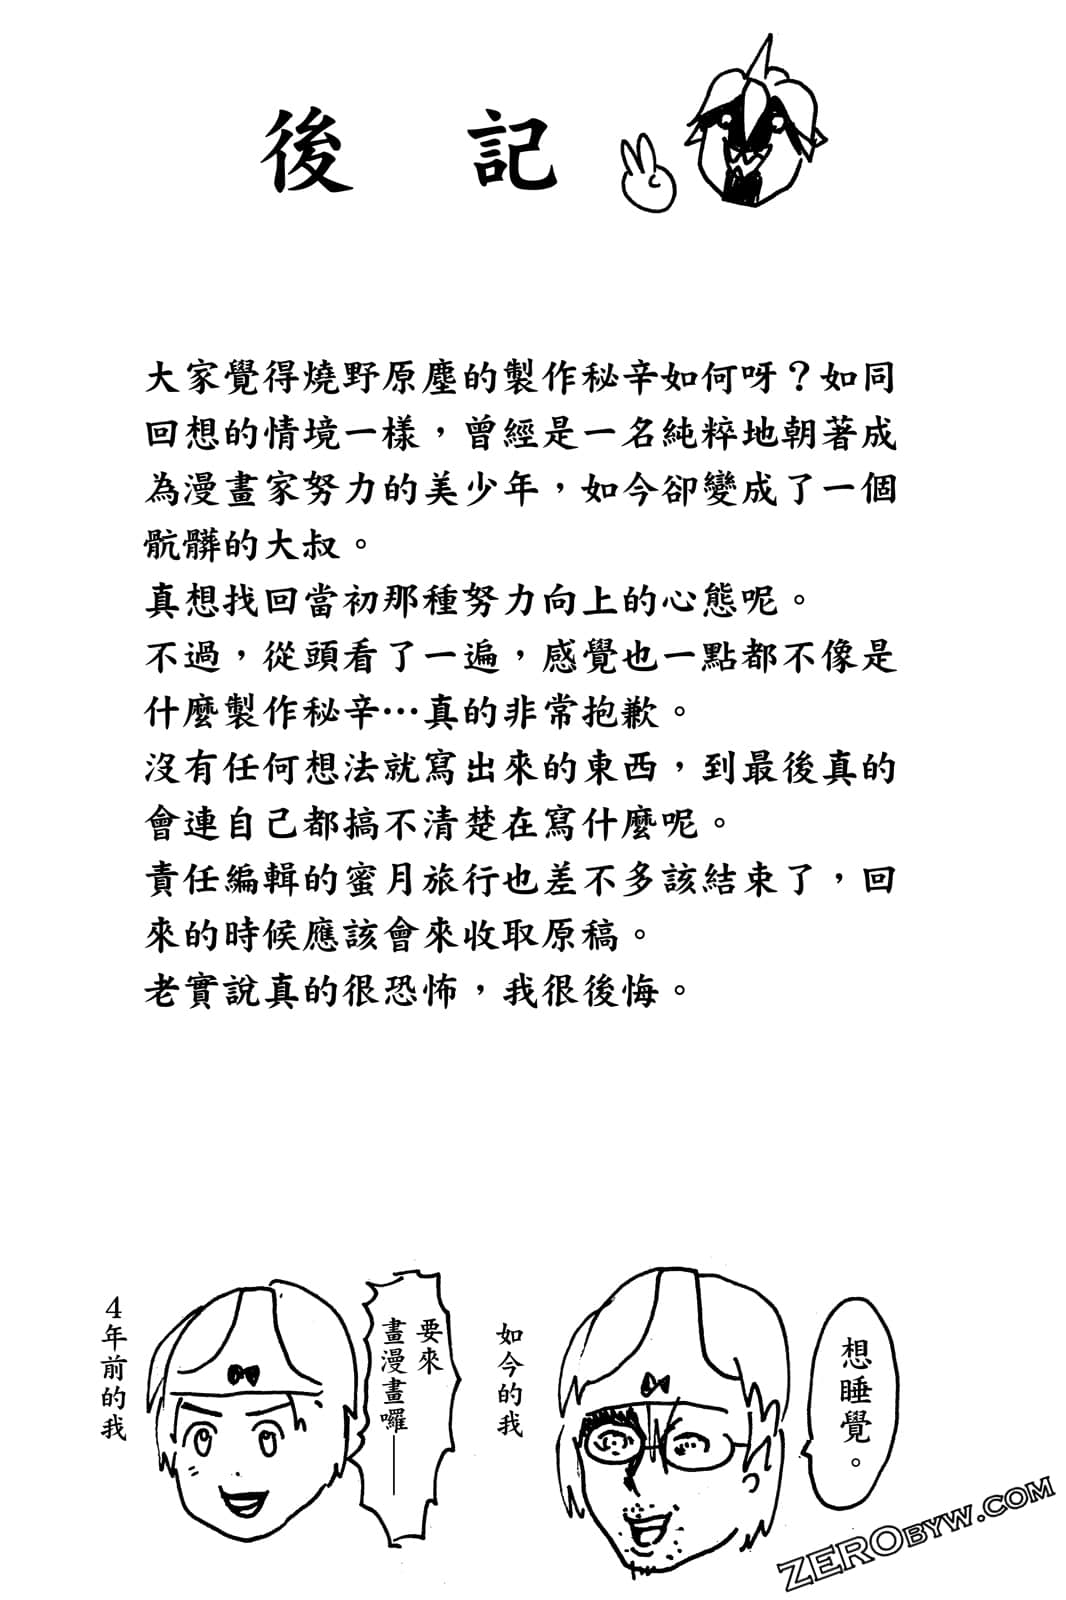 後 記
大家覺得燒野原塵的製作秘辛如何呀？如同
回想的情境一樣，曾經是一名純粹地朝著成
為漫畫家努力的美少年，如今卻變成了一個
骯髒的大叔。
真想找回當初那種努力向上的心態呢。
不過，從頭看了一遍，感覺也一點都不像是
什麼製作秘辛…真的非常抱歉。
沒有任何想法就寫出來的東西，到最後真的
會連自己都搞不清楚在寫什麼呢。
責任編輯的蜜月旅行也差不多該結束了，回
來的時候應該會來收取原稿。
老實說真的很恐怖，我很後悔。
4年前的我
要來
畫漫畫囉——
如今的我
想睡覺。
ZEROBYW.COM